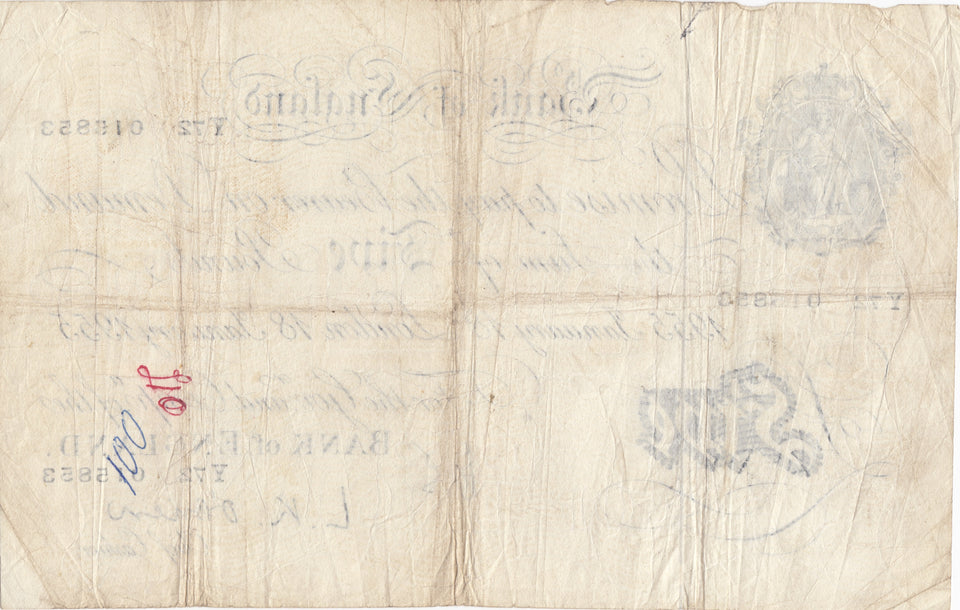 Bank of England
Y72 015853
I Promise to pay the Bearer on Demand
the Sum of Five Pounds
Y72 015853
1955 January 18 London 18 January 1955
For the Govr. and Compa. of the
BANK of ENGLAND.
Y72 015853
Five
L. K. O'Brien
Chief Cashier
100